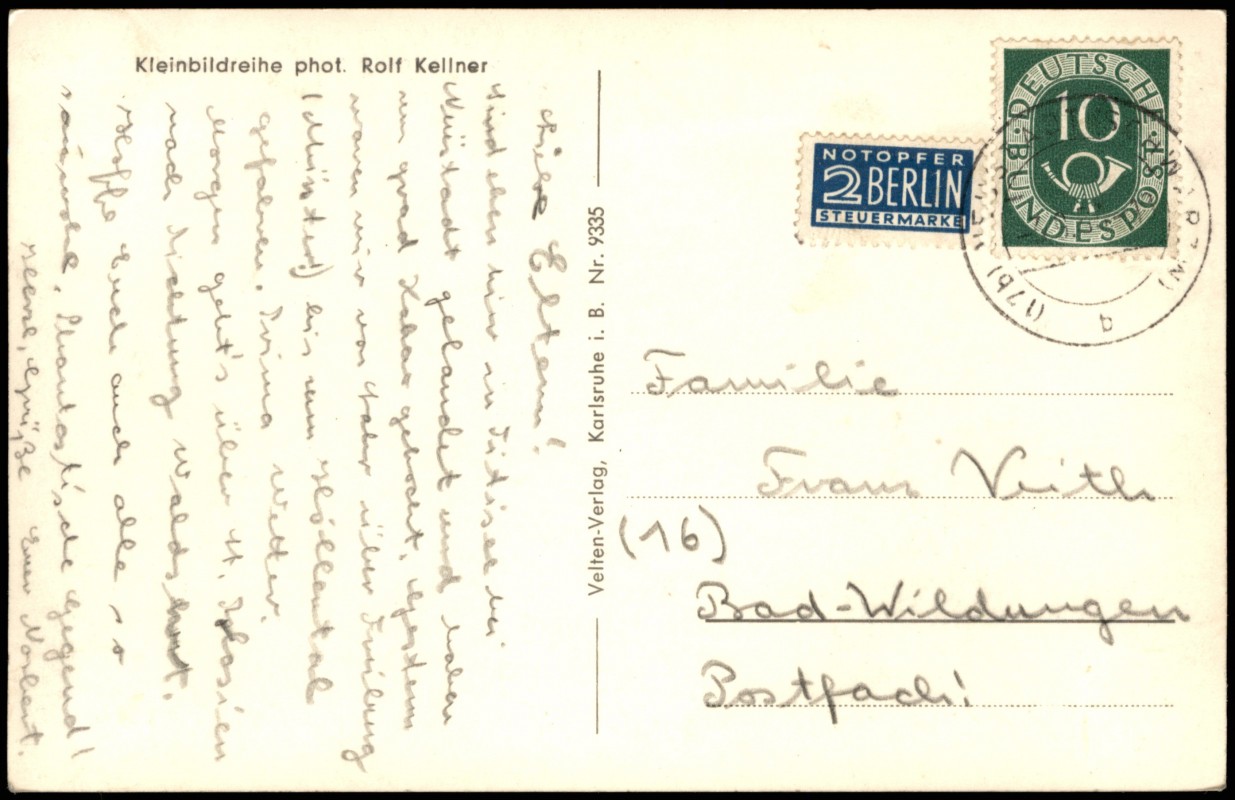 Kleinbildreihe phot. Rolf Kellner
Liebe Eltern!
Sind eben hier in Titisee bei
Neustadt gelandet und haben
um grad Kaba gekocht. Gestern
waren wir von Lahr über Freiburg
(Münster) bis zum Höllental
gefahren. Prima Wetter.
Morgen geht's über St. Blasien
nach Richtung Waldshut.
Hoffe Euch auch alle so
gesund. Phantastische Gegend!
Herzl. Grüße Euer Norbert.
Velten-Verlag, Karlsruhe i. B. Nr. 9335
NOTOPFER
2 BERLIN
STEUERMARKE
DEUTSCHE
BUNDESPOST
10
(17b)
(SCHWARZW)
q
Familie
Franz Veith
(16)
Bad-Wildungen
Postfach!